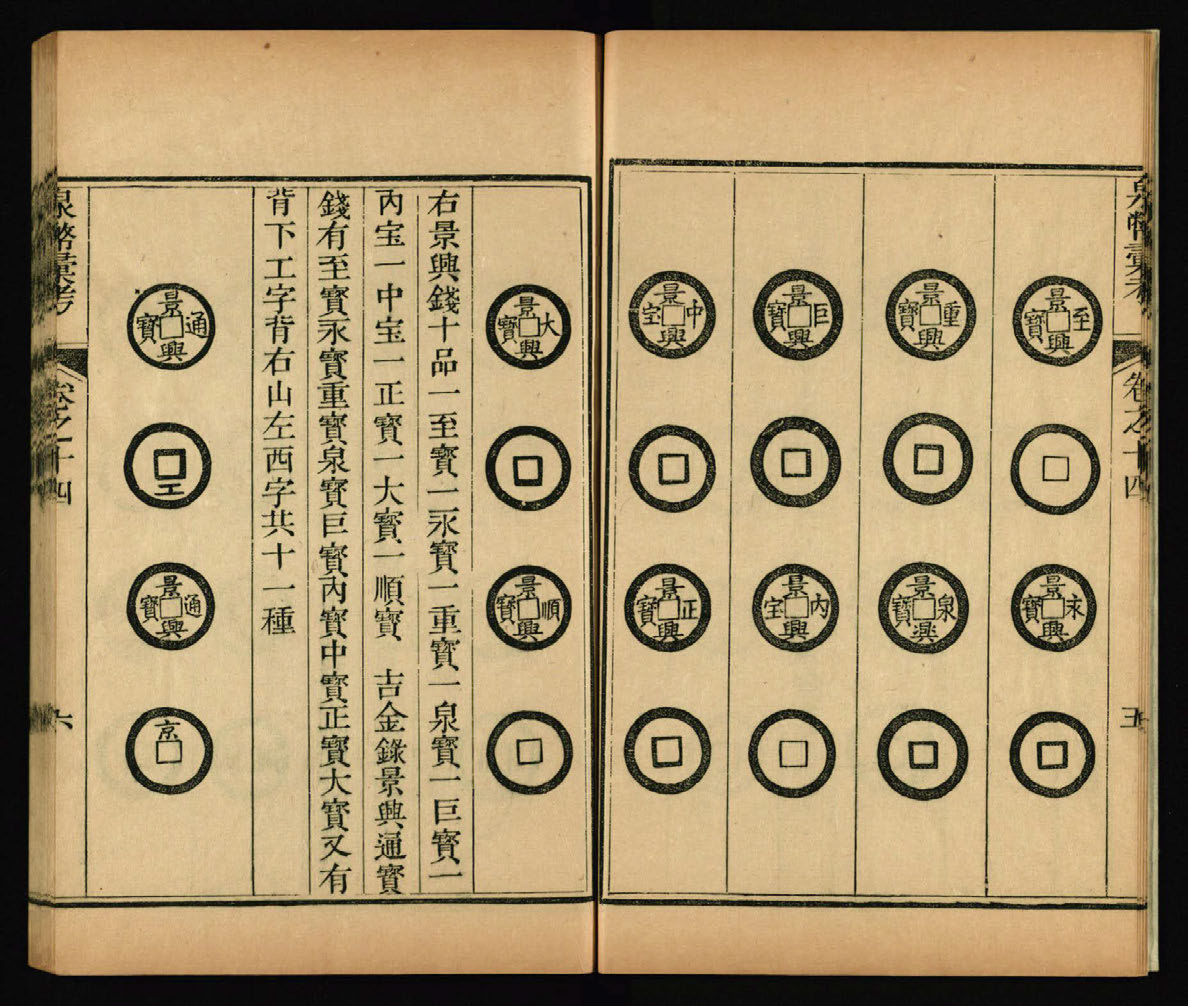 泉幣彙考
卷之十四
五
景興至寶
景興永寶
景興重寶
景興泉寶
景興巨寶
景興內宝
景興中宝
景興正寶
景興大寶
景興順寶
右景興錢十品一至寶一永寶一重寶一泉寶一巨寶一
內宝一中宝一正寶一大寶一順寶　吉金錄景興通寶
錢有至寶永寶重寶泉寶巨寶內寶中寶正寶大寶又有
背下工字背右山左西字共十一種
景興通寶
工
景興通寶
京
泉幣彙考
卷之十四
六